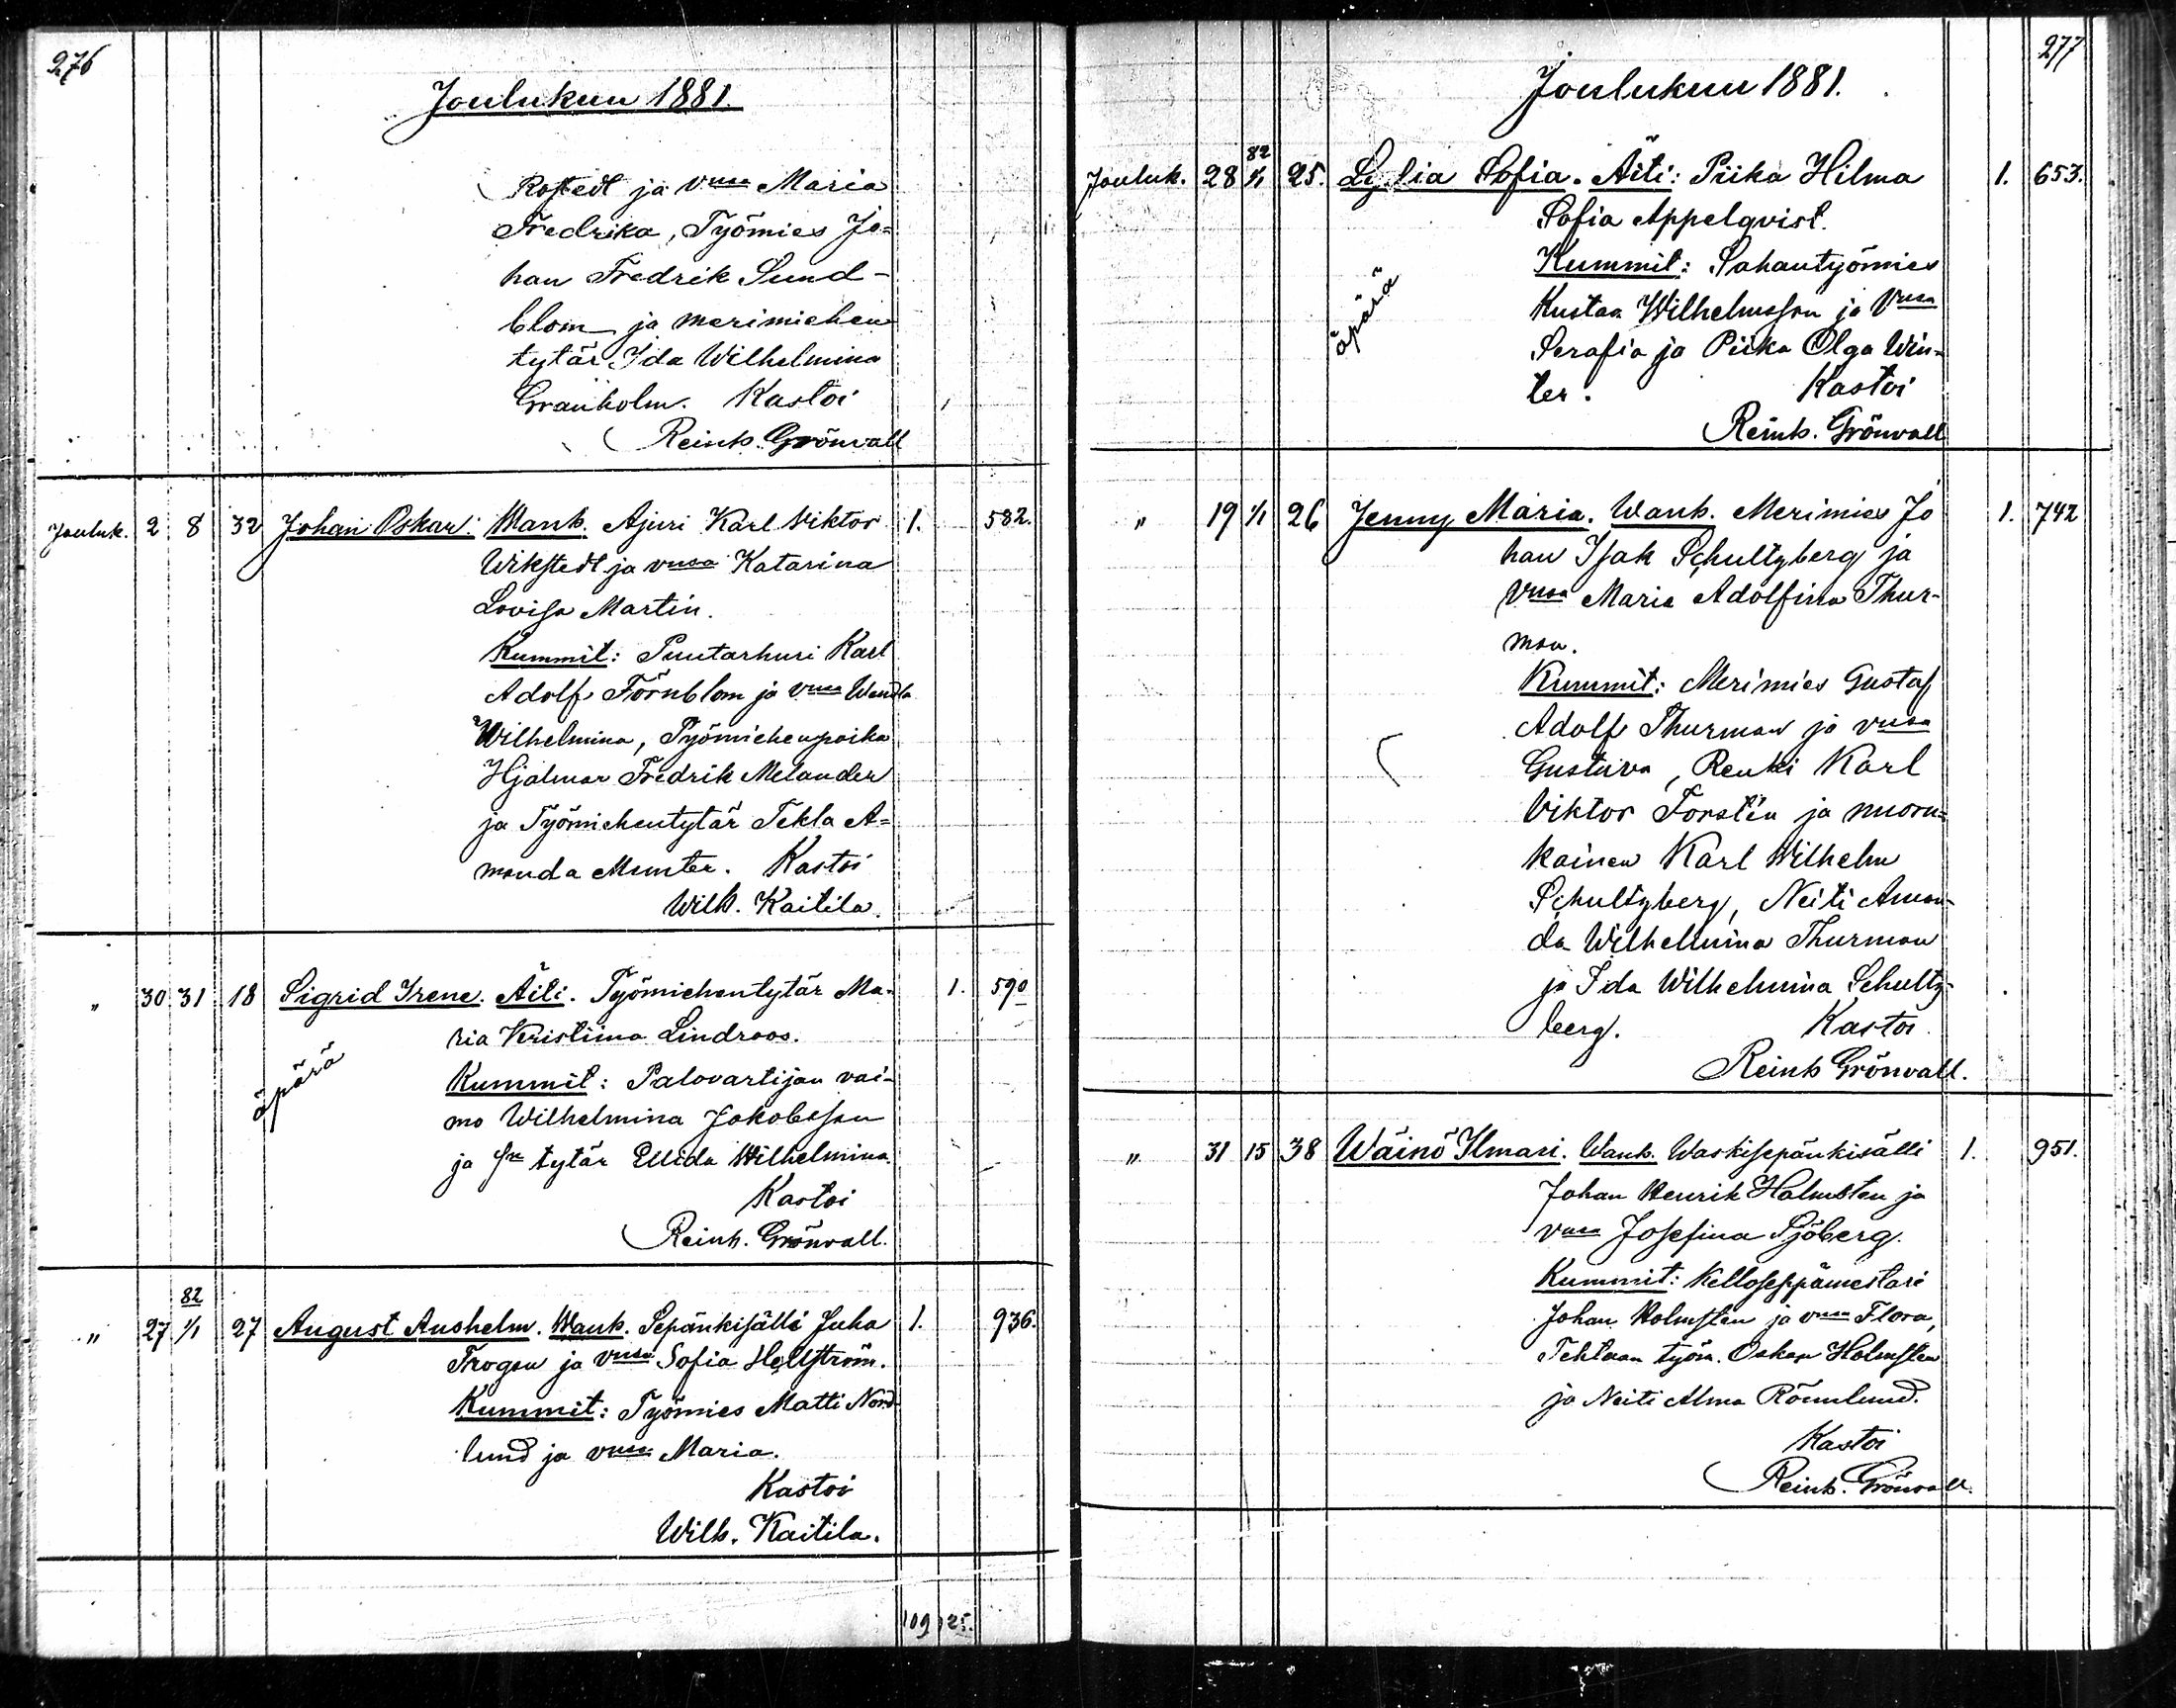 276
Joulukuu 1881.
Rostedt ja vmsa Maria
Fredrika, Työmies Jo=
han Fredrik Sund-
blom ja merimiehen
tytär Ida Wilhelmina
Granholm. Kastoi
Reinh. Grönvall
Jouluk. 2 8 32 Johan Oskar: Wanh. Ajuri Karl Viktor 1. 582.
Wikstedt ja vmsa Katarina
Lovisa Martin.
Kummit: Puutarhuri Karl
Adolf Törnblom ja vmsa Wendla
Wilhelmina, Työmiehenpoika
Hjalmar Fredrik Melander
ja Työmiehentytär Tekla A=
manda Munter. Kastoi
Wilh. Kaitila.
" 30 31 18 Sigrid Irene. Äiti. Työmiehentytär Ma- 1. 590
ria Kristiina Lindroos.
äpärä
Kummit: Palovartijan vai-
mo Wilhelmina Jakobsson
ja tytär Ellida Wilhelmina.
Kastoi
Reinh. Grönvall.
82
" 27 1/1 27 August Anshelm. Wanh. Sepänkisälli Juha 1. 936.
Frogen ja vmsa Sofia Hellström.
Kummit: Työmies Matti Nord
lund ja vmsa Maria.
Kastoi
Wilh. Kaitila.
109 125.
277
Joulukuu 1881.
82
Jouluk. 28 1/1 25. Lydia Sofia. Äiti: Piika Hilma 1. 653.
Sofia Appelqvist.
Kummit: Sahantyömies
äpärä
Kustaa Wilhelmsson ja Vmsa
Serafia ja Piika Olga Win-
ter. Kastoi
Reinh. Grönvall
" 19 1/1 26 Jenny Maria. Wanh. Merimies Jo 1. 742
han Isak Schultzberg ja
Vmsa Maria Adolfina Thur-
man.
Kummit: Merimies Gustaf
Adolf Thurman ja vmsa
Gustava, Renki Karl
Viktor Forstén ja nuoru=
kainen Karl Wilhelm
Schultzberg, Neiti Aman-
da Wilhelmina Thurman
ja Ida Wilhelmina Schultz-
berg. Kastoi.
Reinh Grönvall.
" 31 15 38 Wäinö Ilmari. Wanh. Waskisepänkisälli 1. 951.
Johan Henrik Holmsten ja
vmsa Josefina Sjöberg.
Kummit: Kelloseppämestari
Johan Holmsten ja vmsa Flora,
Tehtaan työm. Oskar Holmsten
ja Neiti Alma Rönnlund.
Kastoi
Reinh. Grönvall.